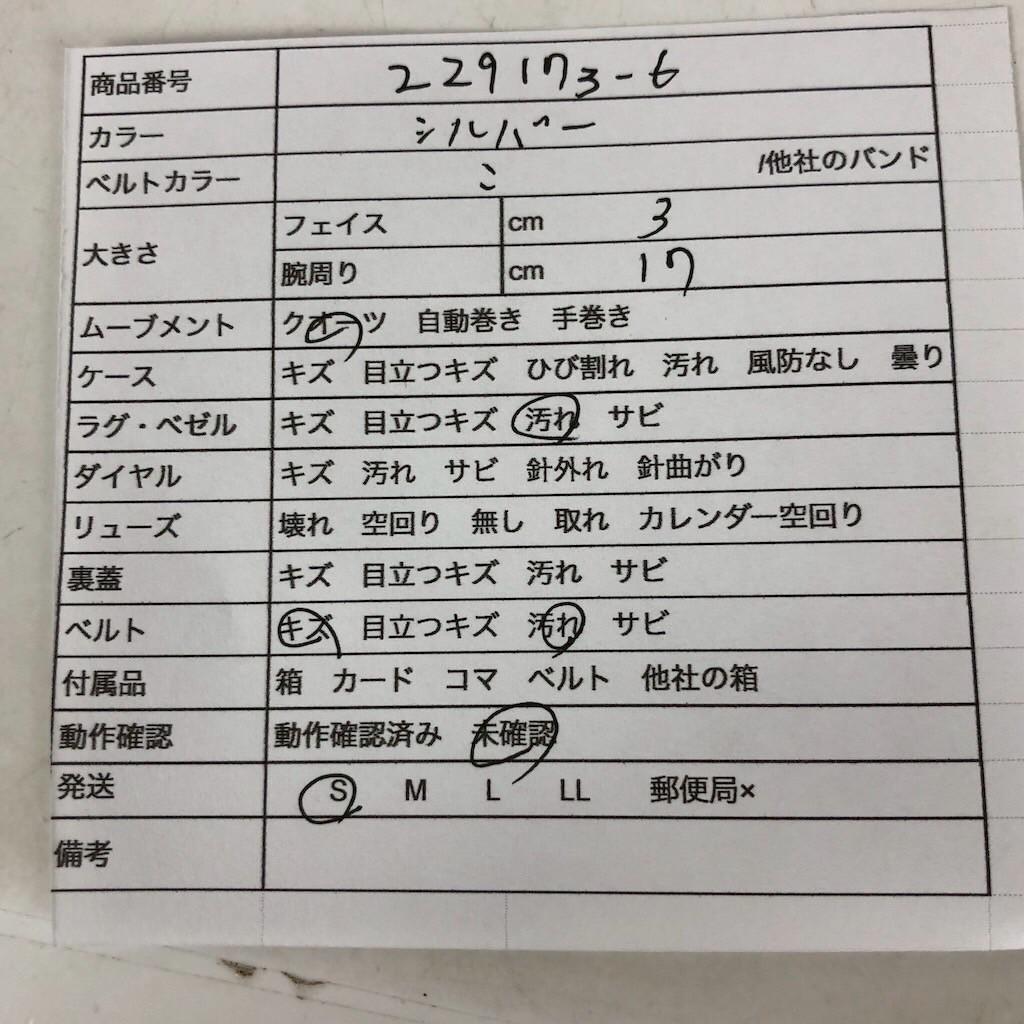 商品番号 229173-6
カラー シルバー
ベルトカラー こ /他社のバンド
大きさ フェイス cm 3
腕周り cm 17
ムーブメント クオーツ 自動巻き 手巻き
ケース キズ 目立つキズ ひび割れ 汚れ 風防なし 曇り
ラグ・ベゼル キズ 目立つキズ 汚れ サビ
ダイヤル キズ 汚れ サビ 針外れ 針曲がり
リューズ 壊れ 空回り 無し 取れ カレンダー空回り
裏蓋 キズ 目立つキズ 汚れ サビ
ベルト キズ 目立つキズ 汚れ サビ
付属品 箱 カード コマ ベルト 他社の箱
動作確認 動作確認済み 未確認
発送 S M L LL 郵便局×
備考